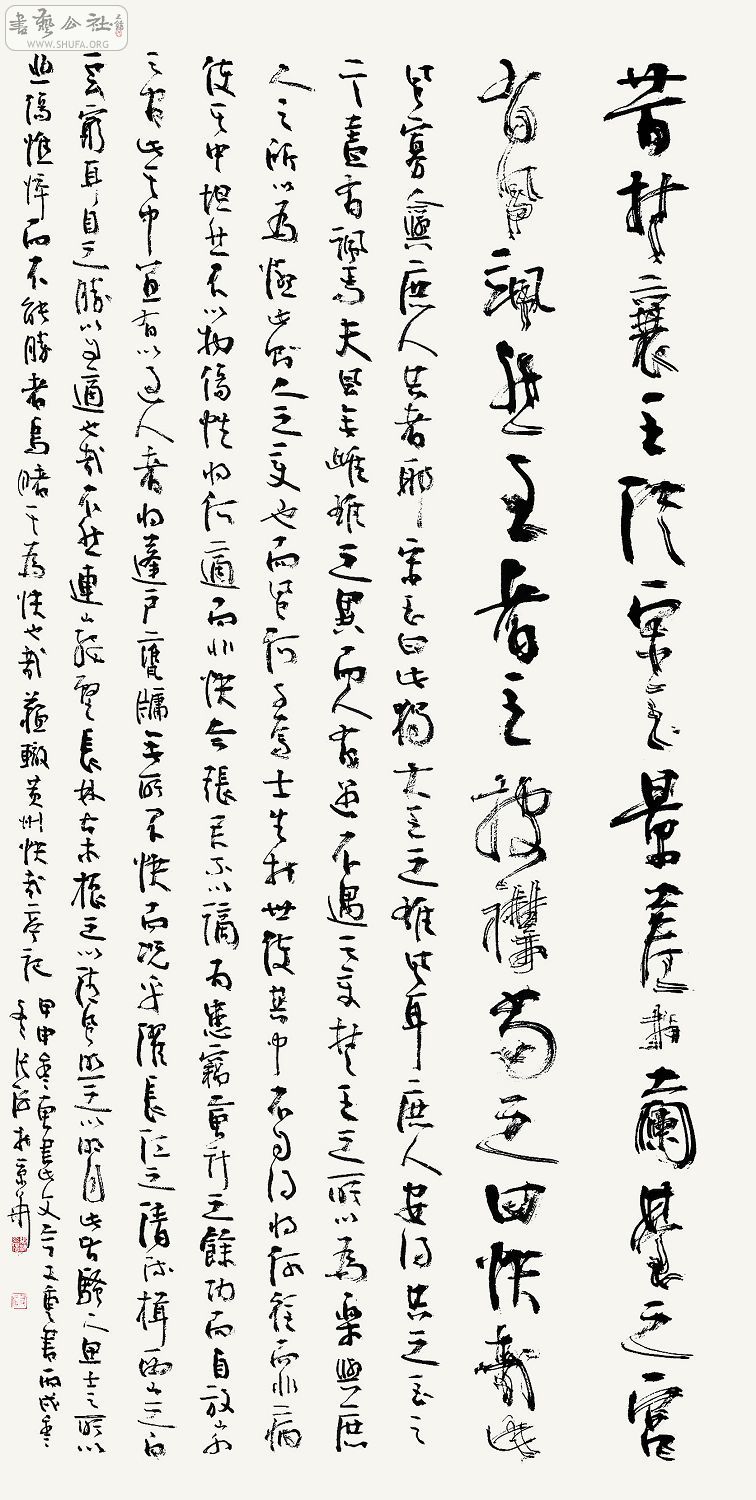 書藝公社
WWW.SHUFA.ORG
昔楚襄王從宋玉景差於蘭臺之宮
有風颯然至者王披襟當之曰快哉此
風寡與庶人共者耶宋玉曰此獨大王之雄風耳庶人安得共之玉之
言蓋有諷焉夫風無雌雄之異而人有遇不遇之變楚王之所以為樂與庶
人之所以為憂此則人之變也而風何與焉士生於世使其中不自得將何往而非病
使其中坦然不以物傷性將何適而非快今張君不以謫為患竊會計之餘功而自放山水
之間此其中宜有以過人者將蓬戶甕牖無所不快而況乎濯長江之清流揖西山之白
雲窮耳目之勝以自適也哉不然連山絕壑長林古木振之以清風照之以明月此皆騷人思士之所以
悲傷憔悴而不能勝者烏睹其為快也哉蘇轍黃州快哉亭記
甲申冬曾書此文今又重書丙戌冬
於京華